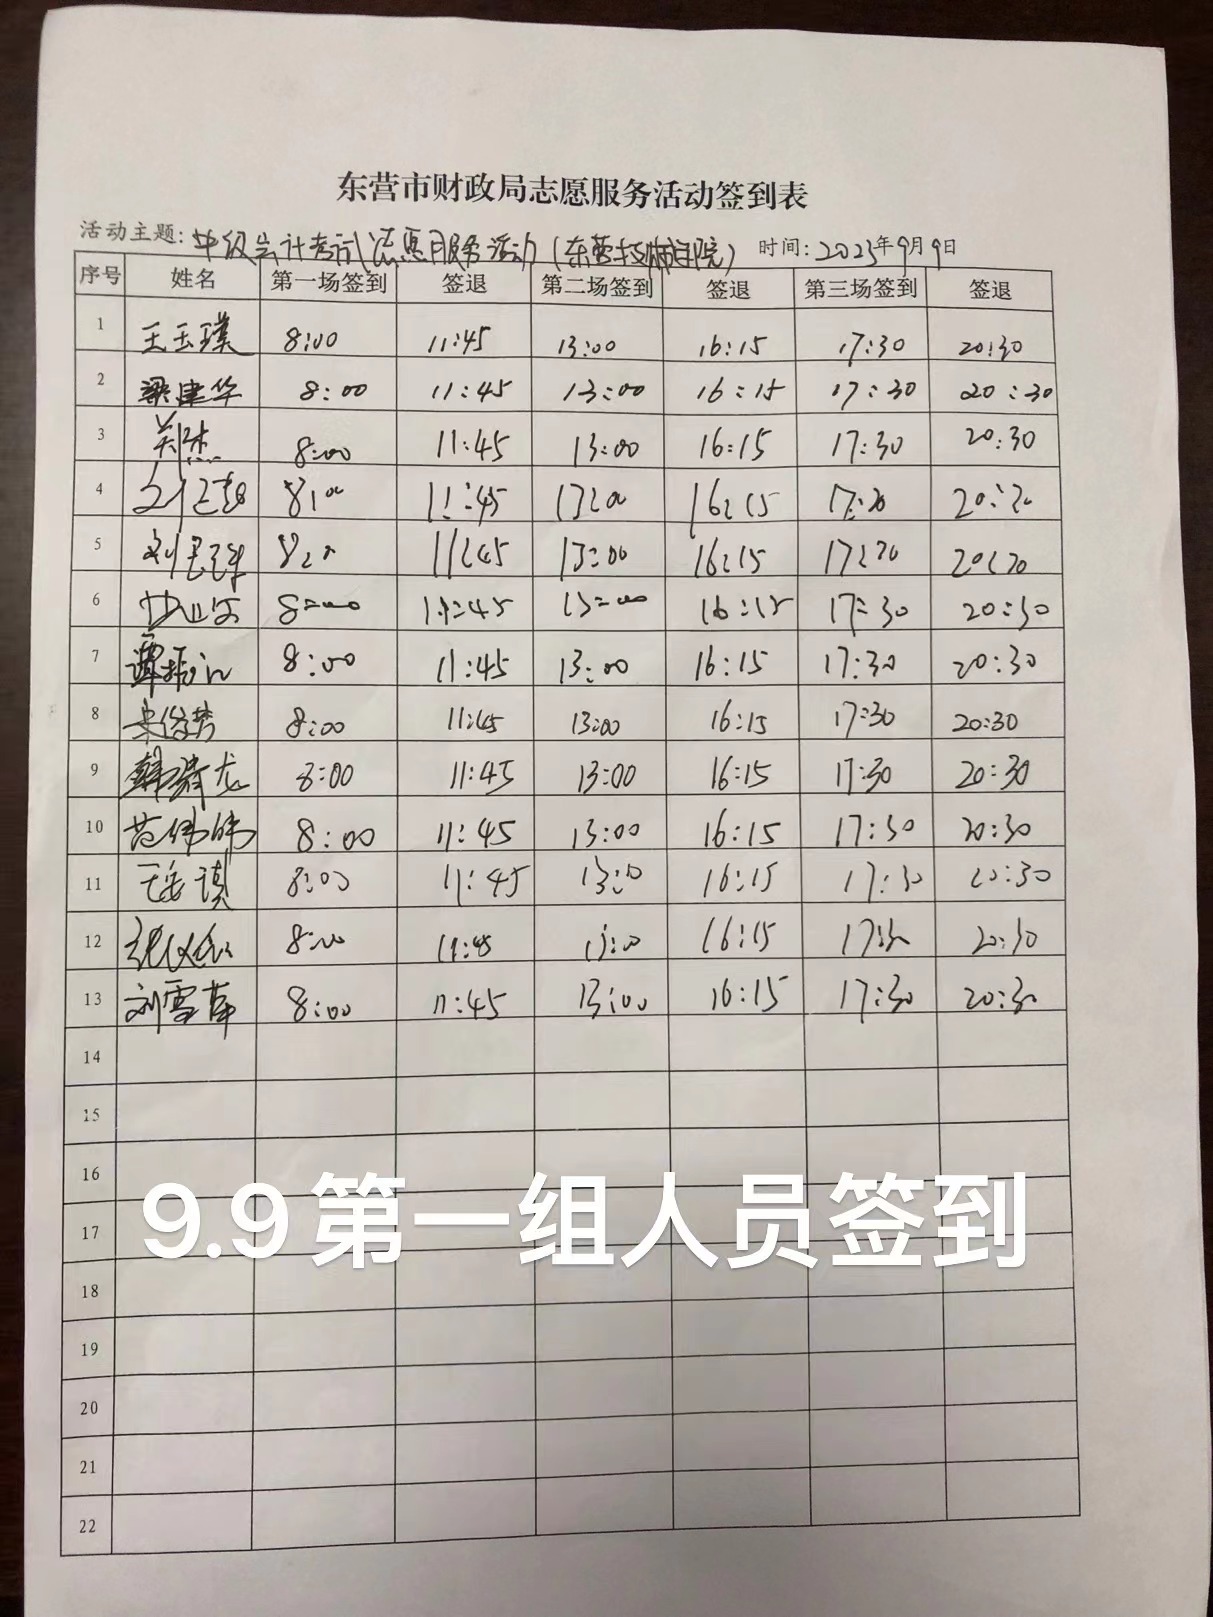 东营市财政局志愿服务活动签到表
活动主题: 中级会计考试志愿服务活动(东营技师学院) 时间: 2023年9月9日
序号 姓名 第一场签到 签退 第二场签到 签退 第三场签到 签退
1 王玉璞 8:00 11:45 13:00 16:15 17:30 20:30
2 梁建华 8:00 11:45 13:00 16:15 17:30 20:30
3 关杰 8:00 11:45 13:00 16:15 17:30 20:30
4 8:00 11:45 13:00 16:15 17:30 20:30
5 刘 8:00 11:45 13:00 16:15 17:30 20:30
6 8:00 11:45 13:00 16:15 17:30 20:30
7 谭振 8:00 11:45 13:00 16:15 17:30 20:30
8 俊梦 8:00 11:45 13:00 16:15 17:30 20:30
9 韩 龙 8:00 11:45 13:00 16:15 17:30 20:30
10 范伟伟 8:00 11:45 13:00 16:15 17:30 20:30
11 王 8:00 11:45 13:00 16:15 17:30 20:30
12 张仪 8:00 11:45 13:00 16:15 17:30 20:30
13 刘雪苹 8:00 11:45 13:00 16:15 17:30 20:30
14
15
16
9.9第一组人员签到
17
18
19
20
21
22